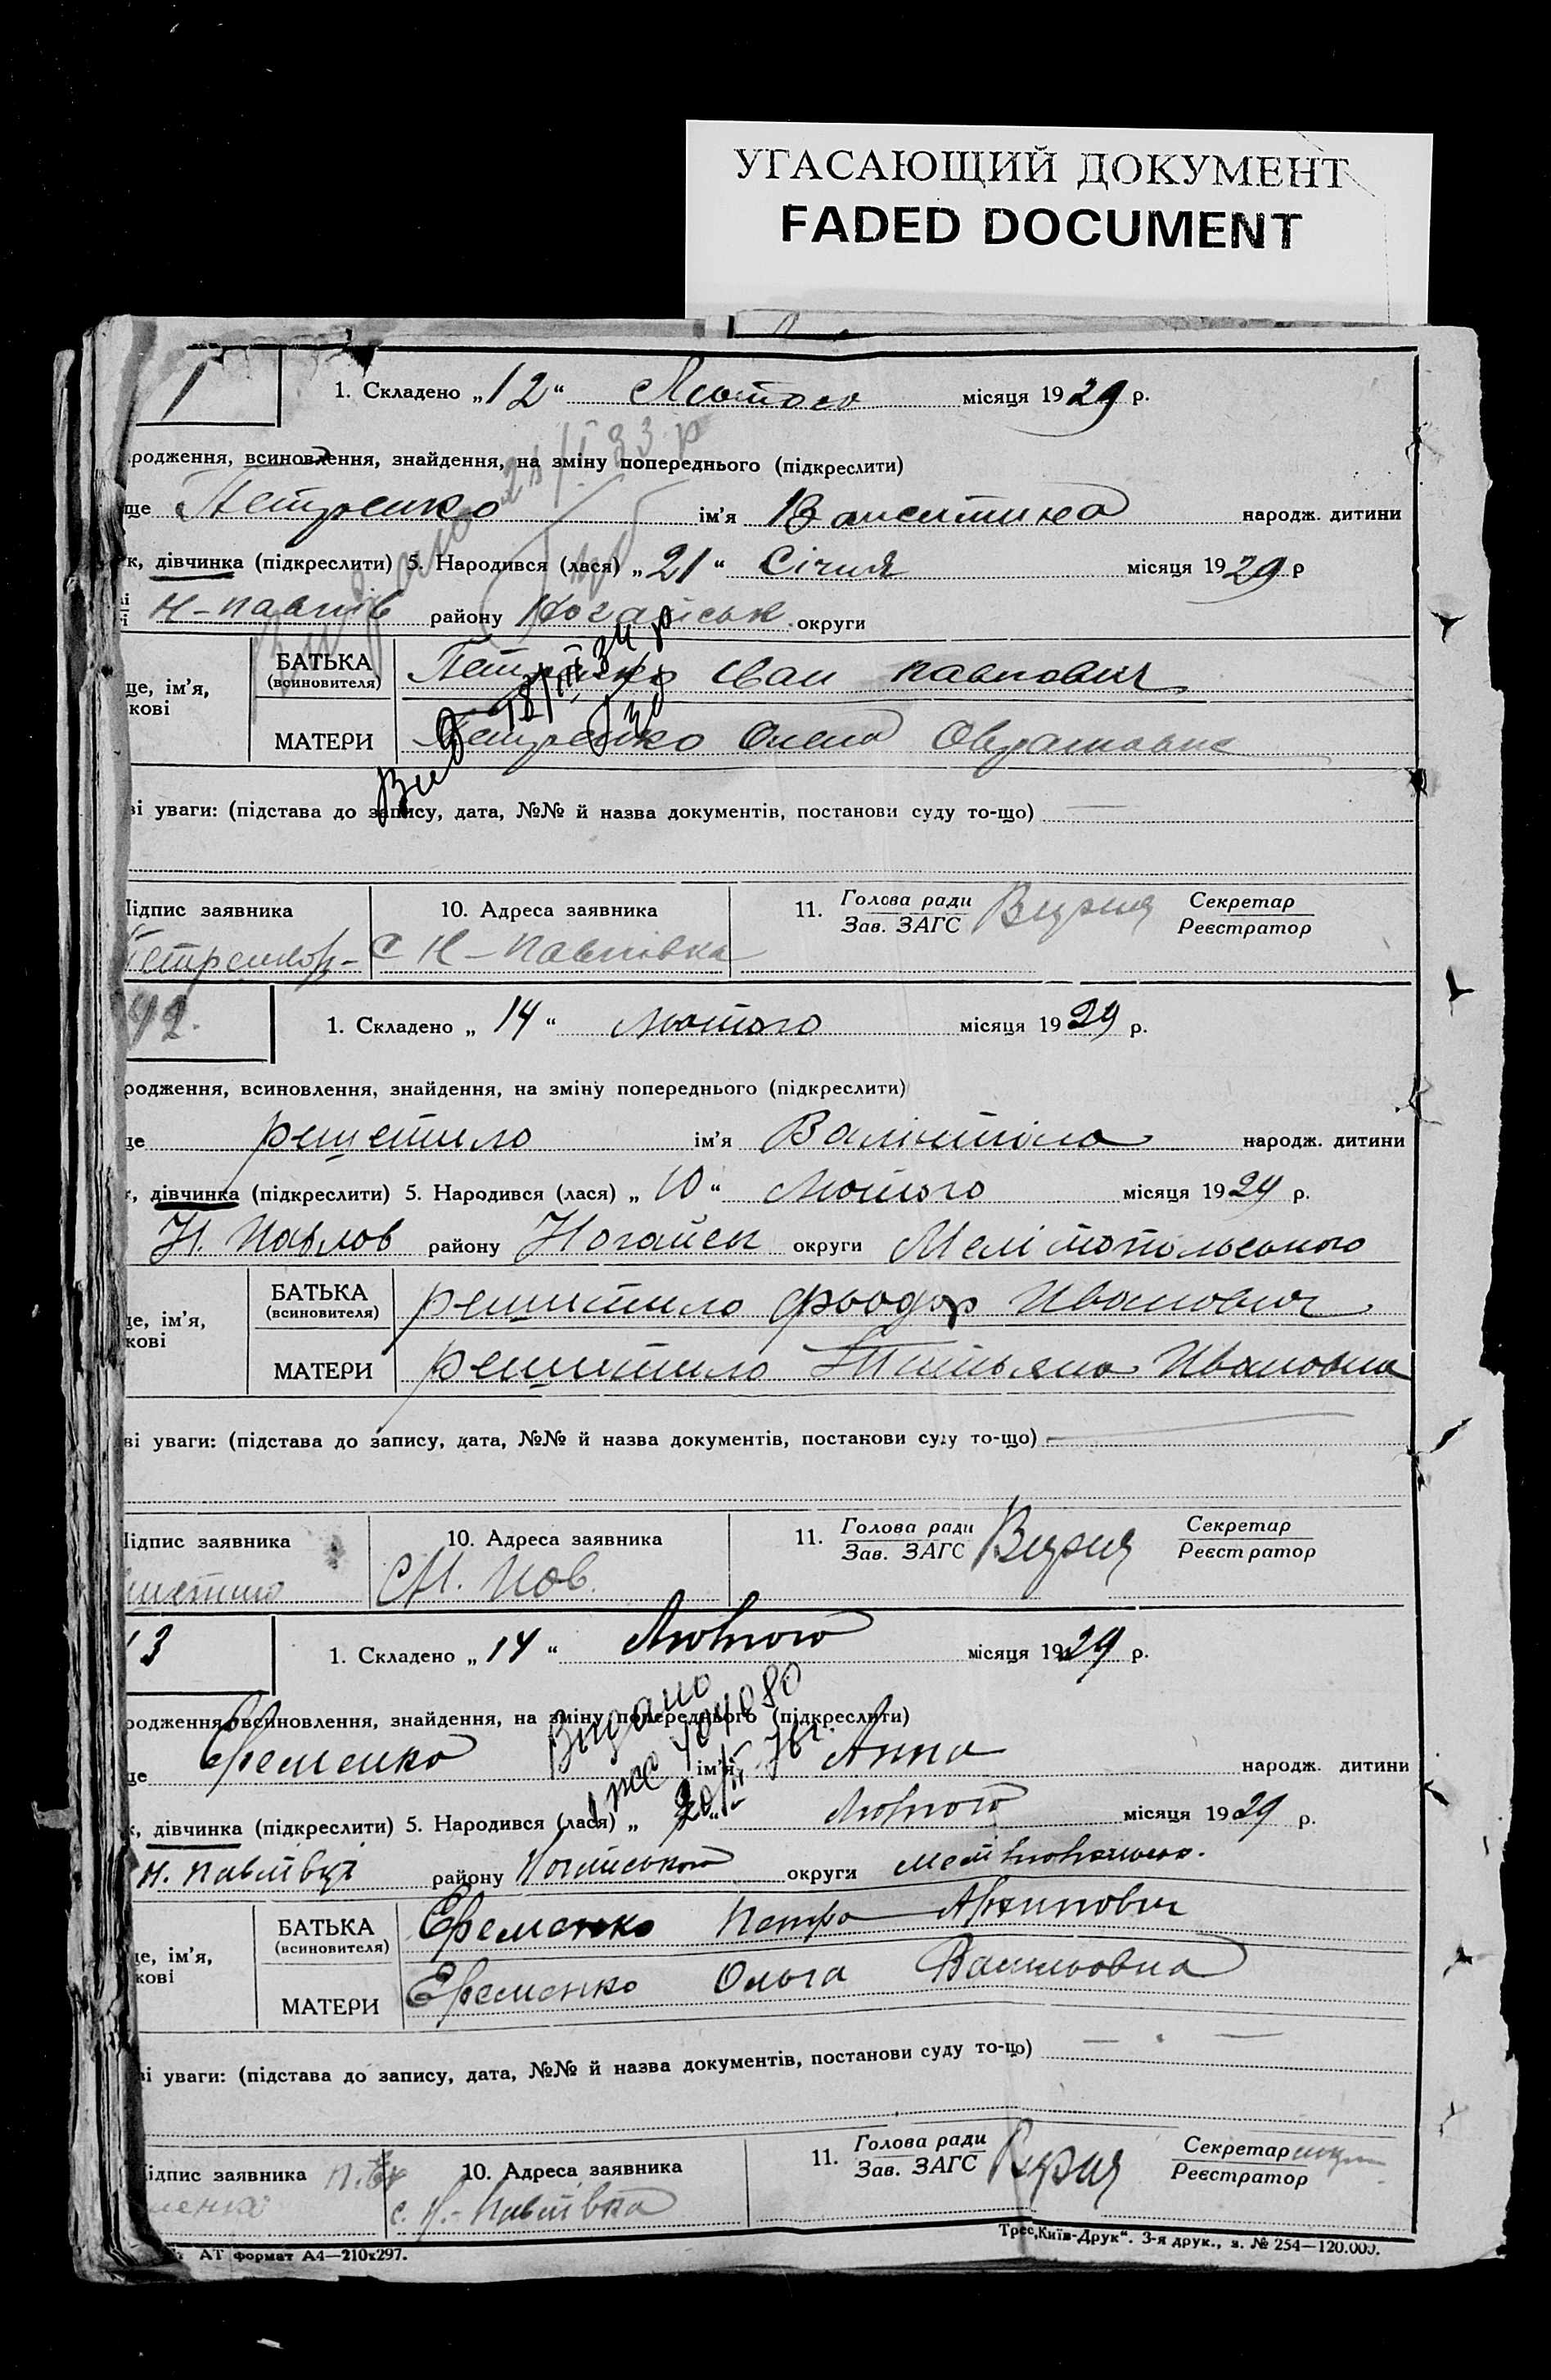 УГАСАЮЩИЙ ДОКУМЕНТ
FADED DOCUMENT
1
1. Складено „12“ Лютого місяця 1929 р.
родження, всиновлення, знайдення, на зміну попереднього (підкреслити)
ще Петренко ім’я Валентина народж. дитини
к, дівчинка (підкреслити) 5. Народився (лася) „21“ Січня місяця 1929 р
Н-Павлів району Ногайськ округи
ще, ім’я,
кові
БАТЬКА
(всиновителя)
Петренко Іван Павлович
МАТЕРИ Петренко Олена
ві уваги: (підстава до запису, дата, №№ й назва документів, постанови суду то-що)
Підпис заявника 10. Адреса заявника 11. Голова ради Секретар
Зав. ЗАГС Реєстратор
Петренко с Н-Павлівка
42.
1. Складено „14“ лютого місяця 1929 р.
родження, всиновлення, знайдення, на зміну попереднього (підкреслити)
ще решетило ім’я Валінтіна народж. дитини
к, дівчинка (підкреслити) 5. Народився (лася) „10“ Лютого місяця 1929 р.
Н. Павлов району Ногайськ округи Мелітопольського
ще, ім’я,
кові
БАТЬКА
(всиновителя)
решитило фьодор Иванович
МАТЕРИ решитило Титьяна Ивановна
ві уваги: (підстава до запису, дата, №№ й назва документів, постанови суду то-що)
Підпис заявника 10. Адреса заявника 11. Голова ради Секретар
Зав. ЗАГС Реєстратор
3
1. Складено „14“ Лютого місяця 1929 р.
родження, всиновлення, знайдення, на зміну попереднього (підкреслити)
Видано
ще Єременко ім’я Анна народж. дитини
к, дівчинка (підкреслити) 5. Народився (лася) „ “ Лютого місяця 1929 р.
Н. Павлівці району округи
ще, ім’я,
кові
БАТЬКА
(всиновителя)
Єременко Петро Архипович
МАТЕРИ Єременко Ольга Васильовна
ві уваги: (підстава до запису, дата, №№ й назва документів, постанови суду то-що)
Підпис заявника 10. Адреса заявника 11. Голова ради Секретар
Зав. ЗАГС Реєстратор
с. Н.-Павлівка
АТ формат А4—210х297.
Трес„Київ-Друк“. 3-я друк., з. № 254—120.000.